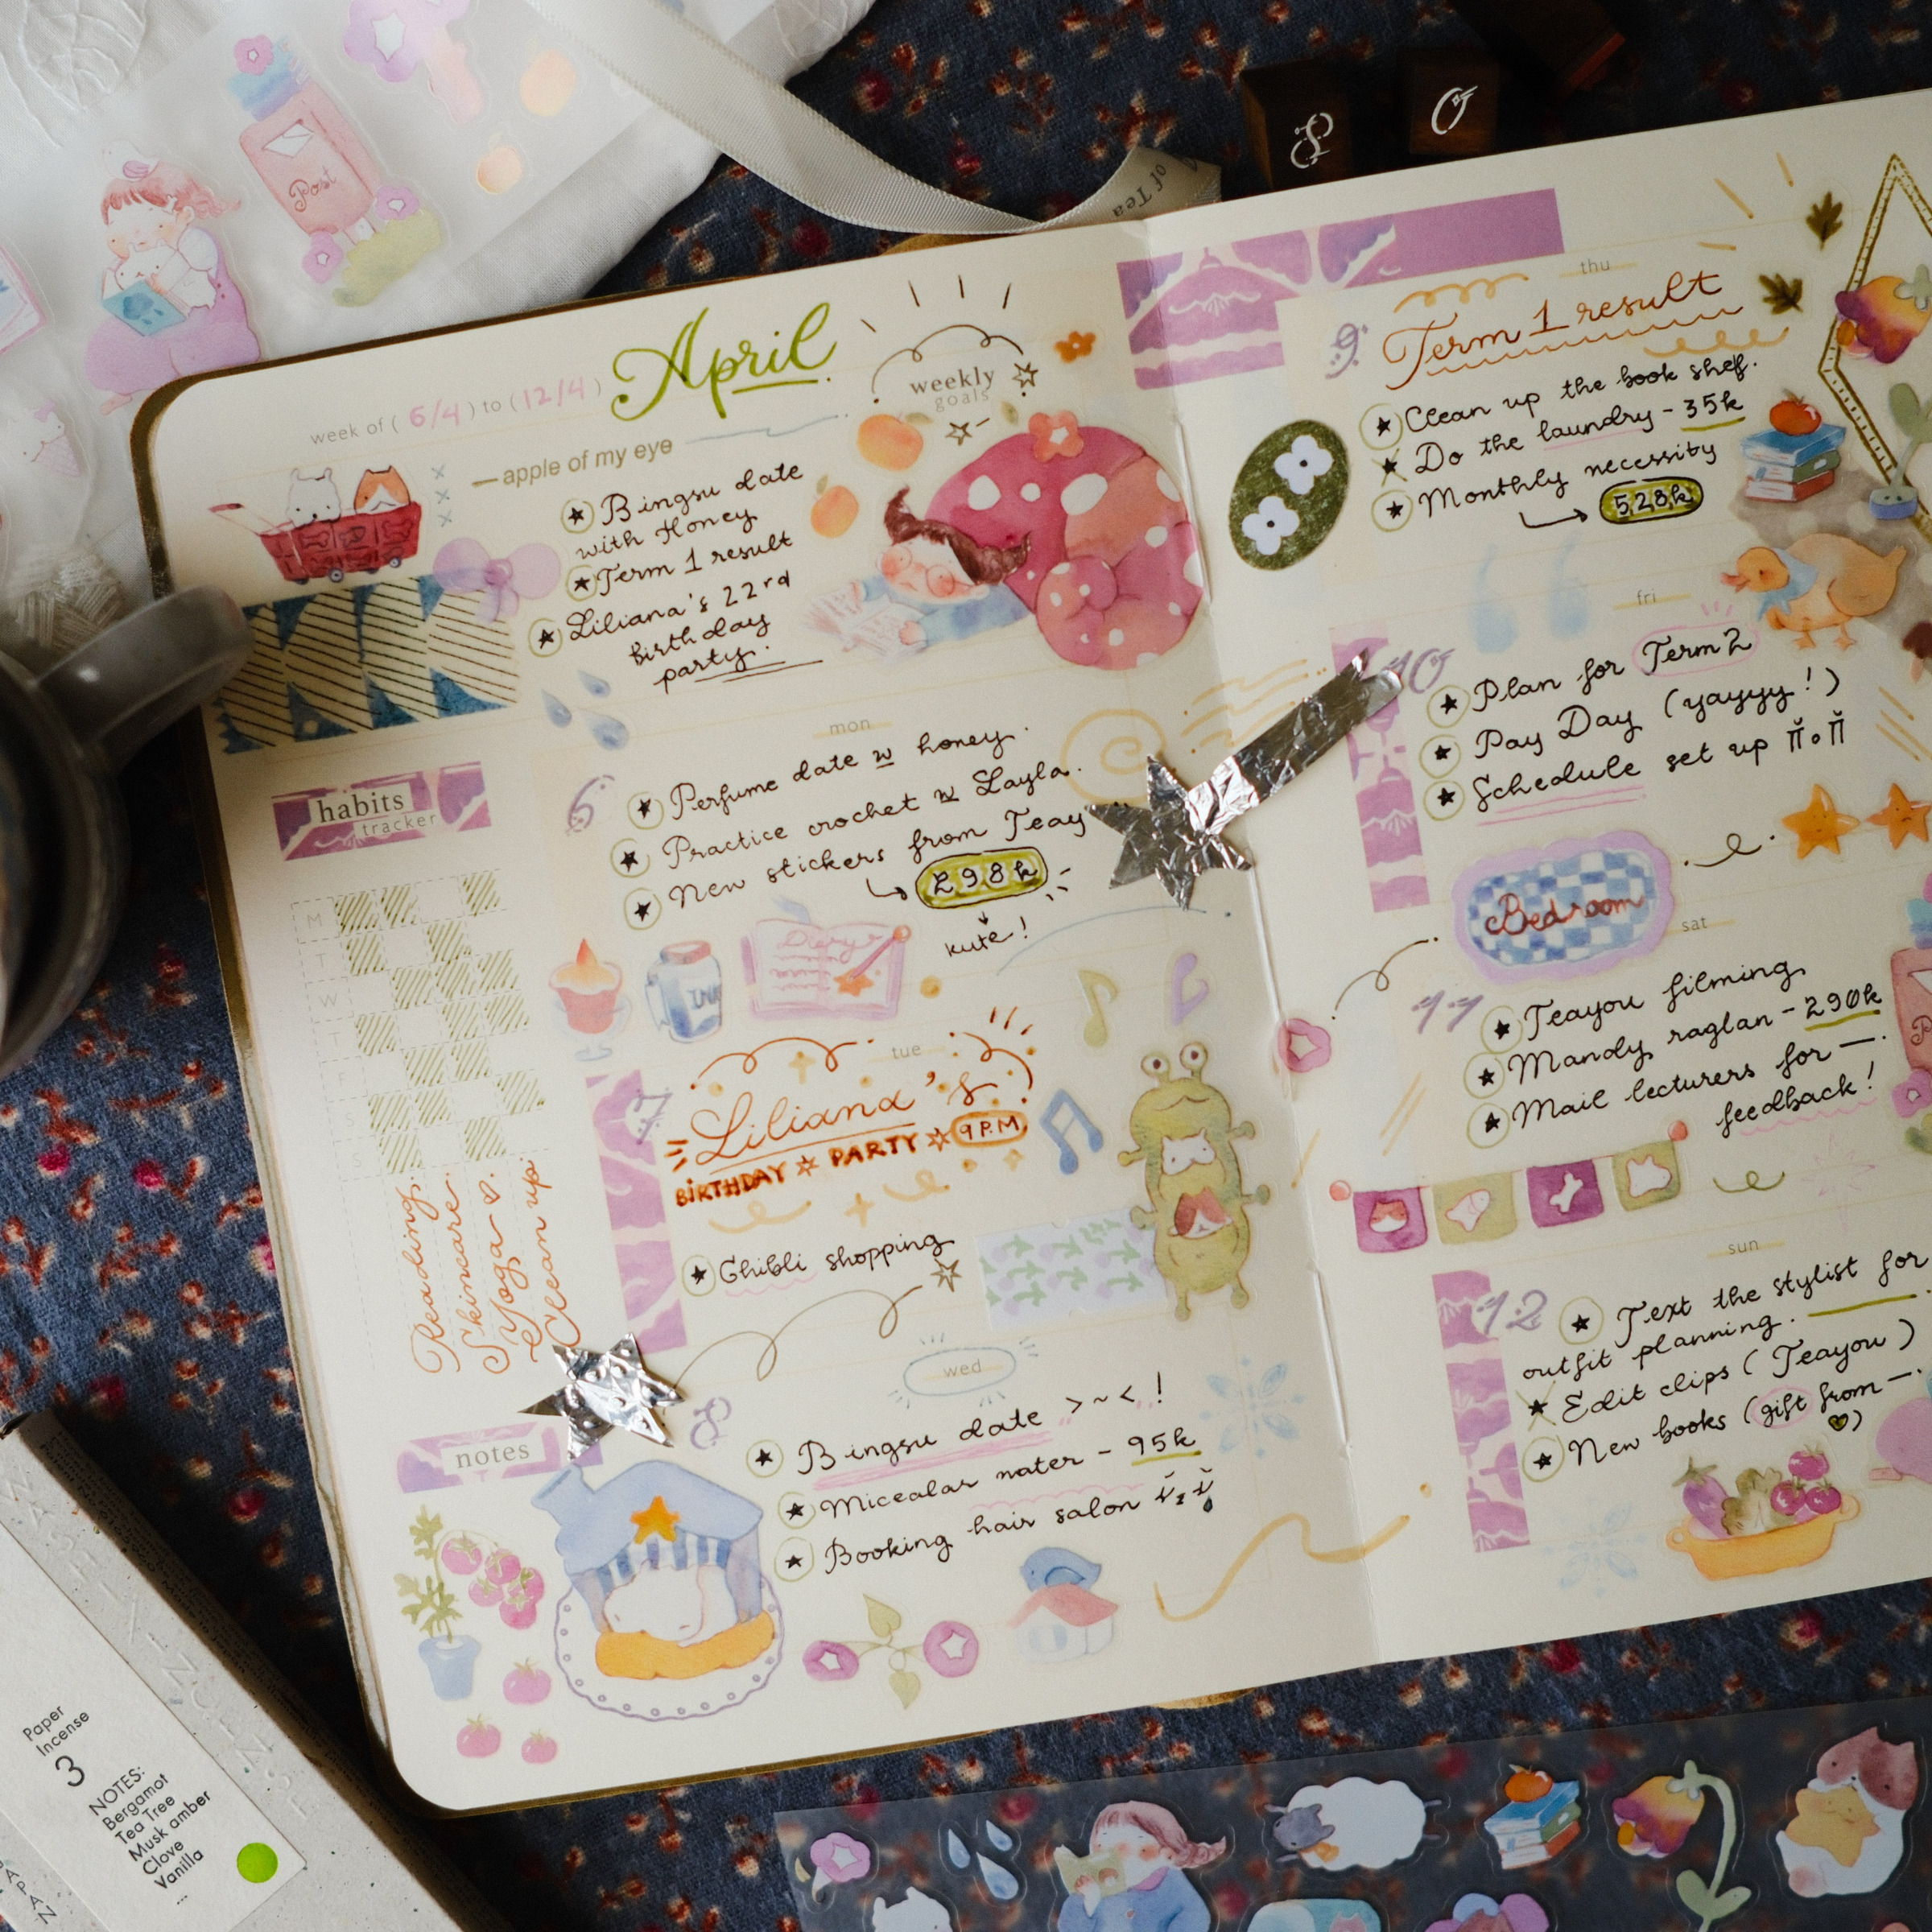 Post
of Tea
S
O
April
week of ( 6/4 ) to ( 12/4 )
weekly
goals
apple of my eye
Bingsu date
with Honey
Term 1 result
Liliana's 22rd
birthday
party.
habits
tracker
M
T
W
T
F
S
S
Reading.
Skincare.
Yoga ♡.
Clean up.
notes
mon
6
Perfume date w honey.
Practice crochet w Layla.
New stickers from Teay
298k
kute!
Diary
INK
tue
7
Liliana's
BIRTHDAY ☆ PARTY ☆ 9P.M
Ghibli shopping
wed
8
Bingsu date >~< !
Micealar water - 95k
Booking hair salon
thu
9
Term 1 result
Clean up the book shelf.
Do the laundry - 35k
Monthly necessity
528k
fri
10
Plan for Term 2
Pay Day (yayyy!)
Schedule set up
Bedroom
sat
11
Teayou filming
Mandy raglan - 290k
Mail lecturers for —.
feedback!
sun
12
Text the stylist for
outfit planning.
Edit clips (Teayou)
New books (gift from —.
♡)
Paper
Incense
3
NOTES:
Bergamot
Tea Tree
Musk amber
Clove
Vanilla
...